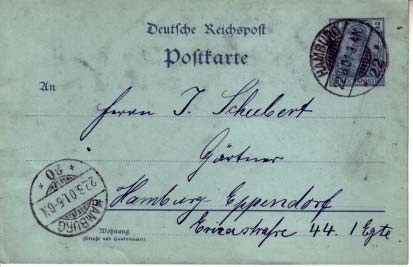 Deutsche Reichspost
Postkarte
An
Herrn J. Schubert
Gärtner
Hamburg-Eppendorf
Ericastraße 44. I Egte
Wohnung
(Straße und Hausnummer)
HAMBURG
22
HAMBURG
22.3.01.5-6N
* 20 *
2